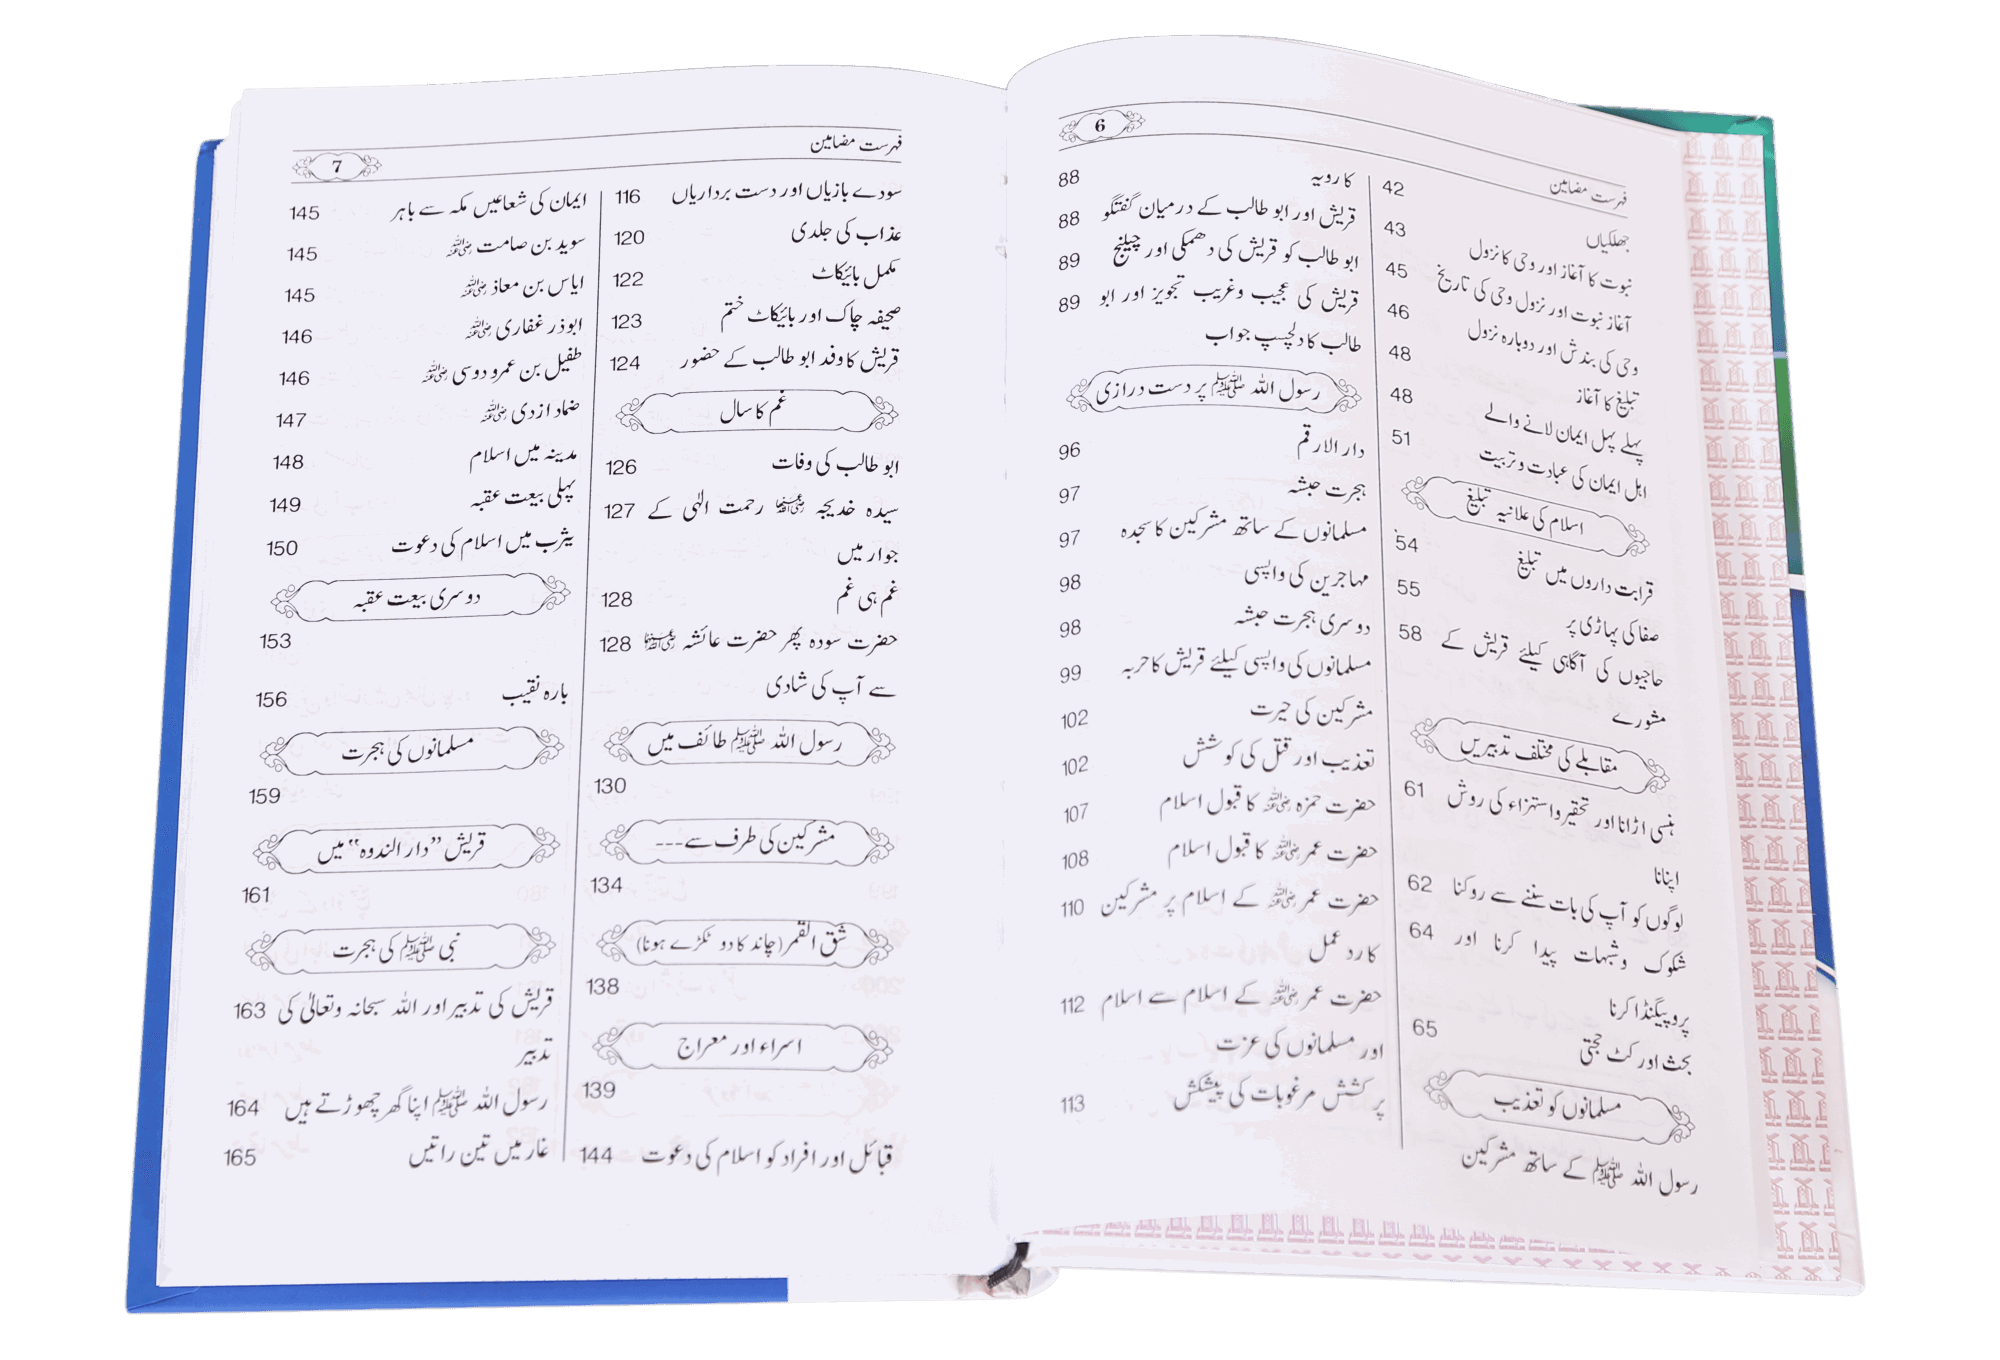 6
فہرست مضامین
جھلکیاں 42
نبوت کا آغاز اور وحی کا نزول 43
آغاز نبوت اور نزول وحی کی تاریخ 45
وحی کی بندش اور دوبارہ نزول 46
تبلیغ کا آغاز 48
پہلے پہل ایمان لانے والے 48
اہل ایمان کی عبادت و تربیت 51
اسلام کی علانیہ تبلیغ
قرابت داروں میں تبلیغ 54
صفا کی پہاڑی پر 55
حاجیوں کی آگاہی کیلئے قریش کے 58
مشورے
مقابلے کی مختلف تدبیریں
ہنسی اڑانا اور تحقیر واستہزاء کی روش 61
اپنانا
لوگوں کو آپ کی بات سننے سے روکنا 62
شکوک وشبہات پیدا کرنا اور 64
پروپیگنڈا کرنا
بحث اور کٹ حجتی 65
مسلمانوں کو تعذیب
رسول اللہ ﷺ کے ساتھ مشرکین
کا رویہ 88
قریش اور ابو طالب کے درمیان گفتگو 88
ابو طالب کو قریش کی دھمکی اور چیلنج 89
قریش کی عجیب وغریب تجویز اور ابو 89
طالب کا دلچسپ جواب
رسول اللہ ﷺ پر دست درازی
دار الارقم 96
ہجرت حبشہ 97
مسلمانوں کے ساتھ مشرکین کا سجدہ 97
مہاجرین کی واپسی 98
دوسری ہجرت حبشہ 98
مسلمانوں کی واپسی کیلئے قریش کا حربہ 99
مشرکین کی حیرت 102
تعذیب اور قتل کی کوشش 102
حضرت حمزہ رضی اللہ عنہ کا قبول اسلام 107
حضرت عمر رضی اللہ عنہ کا قبول اسلام 108
حضرت عمر رضی اللہ عنہ کے اسلام پر مشرکین 110
کا رد عمل
حضرت عمر رضی اللہ عنہ کے اسلام سے اسلام 112
اور مسلمانوں کی عزت
پر کشش مرغوبات کی پیشکش 113
7
فہرست مضامین
سودے بازیاں اور دست برداریاں 116
عذاب کی جلدی 120
مکمل بائیکاٹ 122
صحیفہ چاک اور بائیکاٹ ختم 123
قریش کا وفد ابو طالب کے حضور 124
غم کا سال
ابو طالب کی وفات 126
سیدہ خدیجہ رضی اللہ عنہا رحمت الٰہی کے 127
جوار میں
غم ہی غم 128
حضرت سودہ پھر حضرت عائشہ رضی اللہ عنہما 128
سے آپ کی شادی
رسول اللہ ﷺ طائف میں
130
مشرکین کی طرف سے ---
134
شق القمر (چاند کا دو ٹکڑے ہونا)
138
اسراء اور معراج
139
قبائل اور افراد کو اسلام کی دعوت 144
ایمان کی شعاعیں مکہ سے باہر 145
سوید بن صامت رضی اللہ عنہ 145
ایاس بن معاذ رضی اللہ عنہ 145
ابوذر غفاری رضی اللہ عنہ 146
طفیل بن عمرو دوسی رضی اللہ عنہ 146
ضماد ازدی رضی اللہ عنہ 147
مدینہ میں اسلام 148
پہلی بیعت عقبہ 149
یثرب میں اسلام کی دعوت 150
دوسری بیعت عقبہ
153
بارہ نقیب 156
مسلمانوں کی ہجرت
159
قریش ”دار الندوہ“ میں
161
نبی ﷺ کی ہجرت
قریش کی تدبیر اور اللہ سبحانہ وتعالیٰ کی 163
تدبیر
رسول اللہ ﷺ اپنا گھر چھوڑتے ہیں 164
غار میں تین راتیں 165